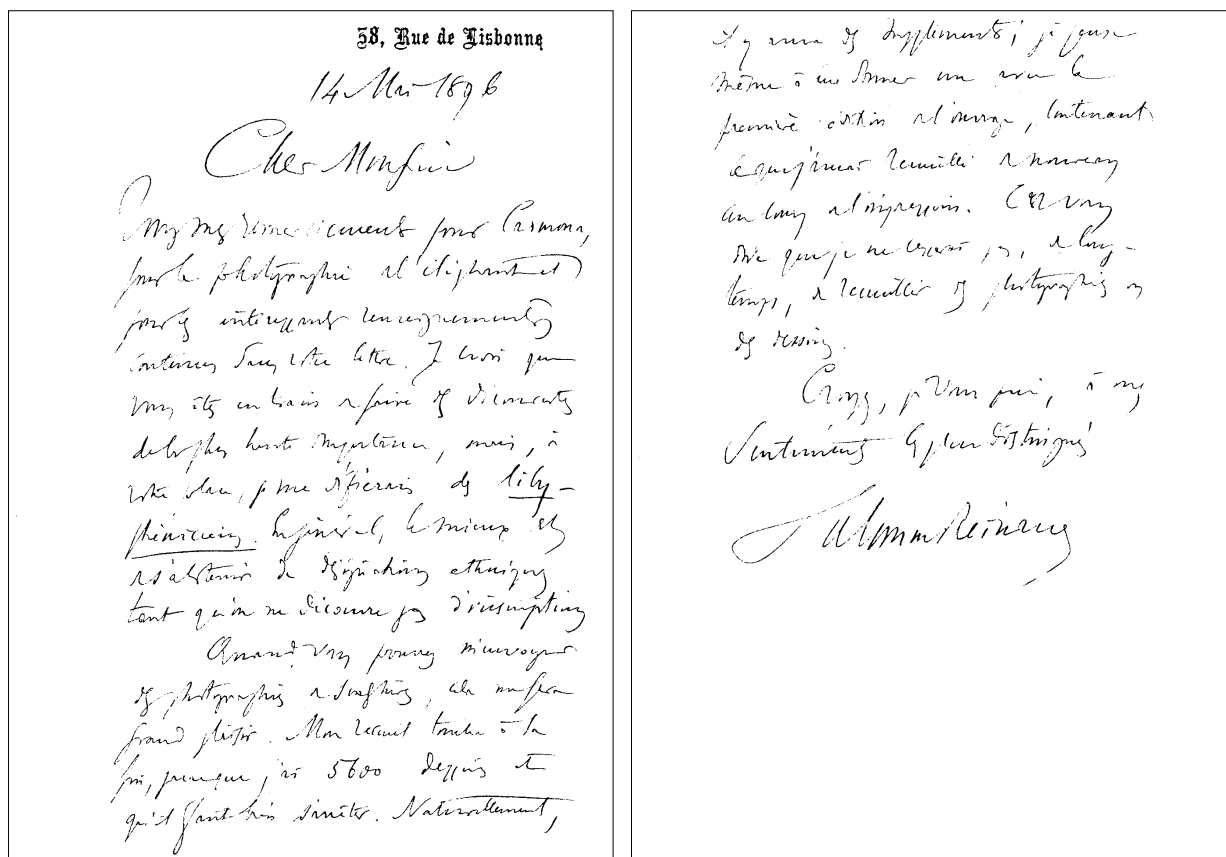 38, Rue de Lisbonne
14 Mai 1896
Cher Monsieur
Mes remerciements pour Carmona,
pour la photographie de l'éléphant et
pour les intéressants renseignements
contenus dans votre lettre. Je crois que
vous êtes en train de faire des découvertes
de la plus haute importance, mais, à
votre place, je me défierais des liby-
phéniciens. En général, le mieux est
de s'abstenir de désignations ethniques
tant qu'on ne découvre pas d'inscriptions
Quand vous pourrez m'envoyer
des photographies de sculptures, cela me fera
grand plaisir. Mon recueil touche à sa
fin, puisque j'ai 5600 dessins et
qu'il faut bien s'arrêter. Naturellement,
il y aura des suppléments; je pense
même à en donner un avec la
première édition de l'ouvrage, contenant
ce que j'aurai recueilli de nouveau
au cours de l'impression. C'est vous
dire que je ne cesserai pas, de long-
temps, de recueillir des photographies ou
des dessins.
Croyez, je vous prie, à mes
sentiments les plus distingués
Salomon Reinach